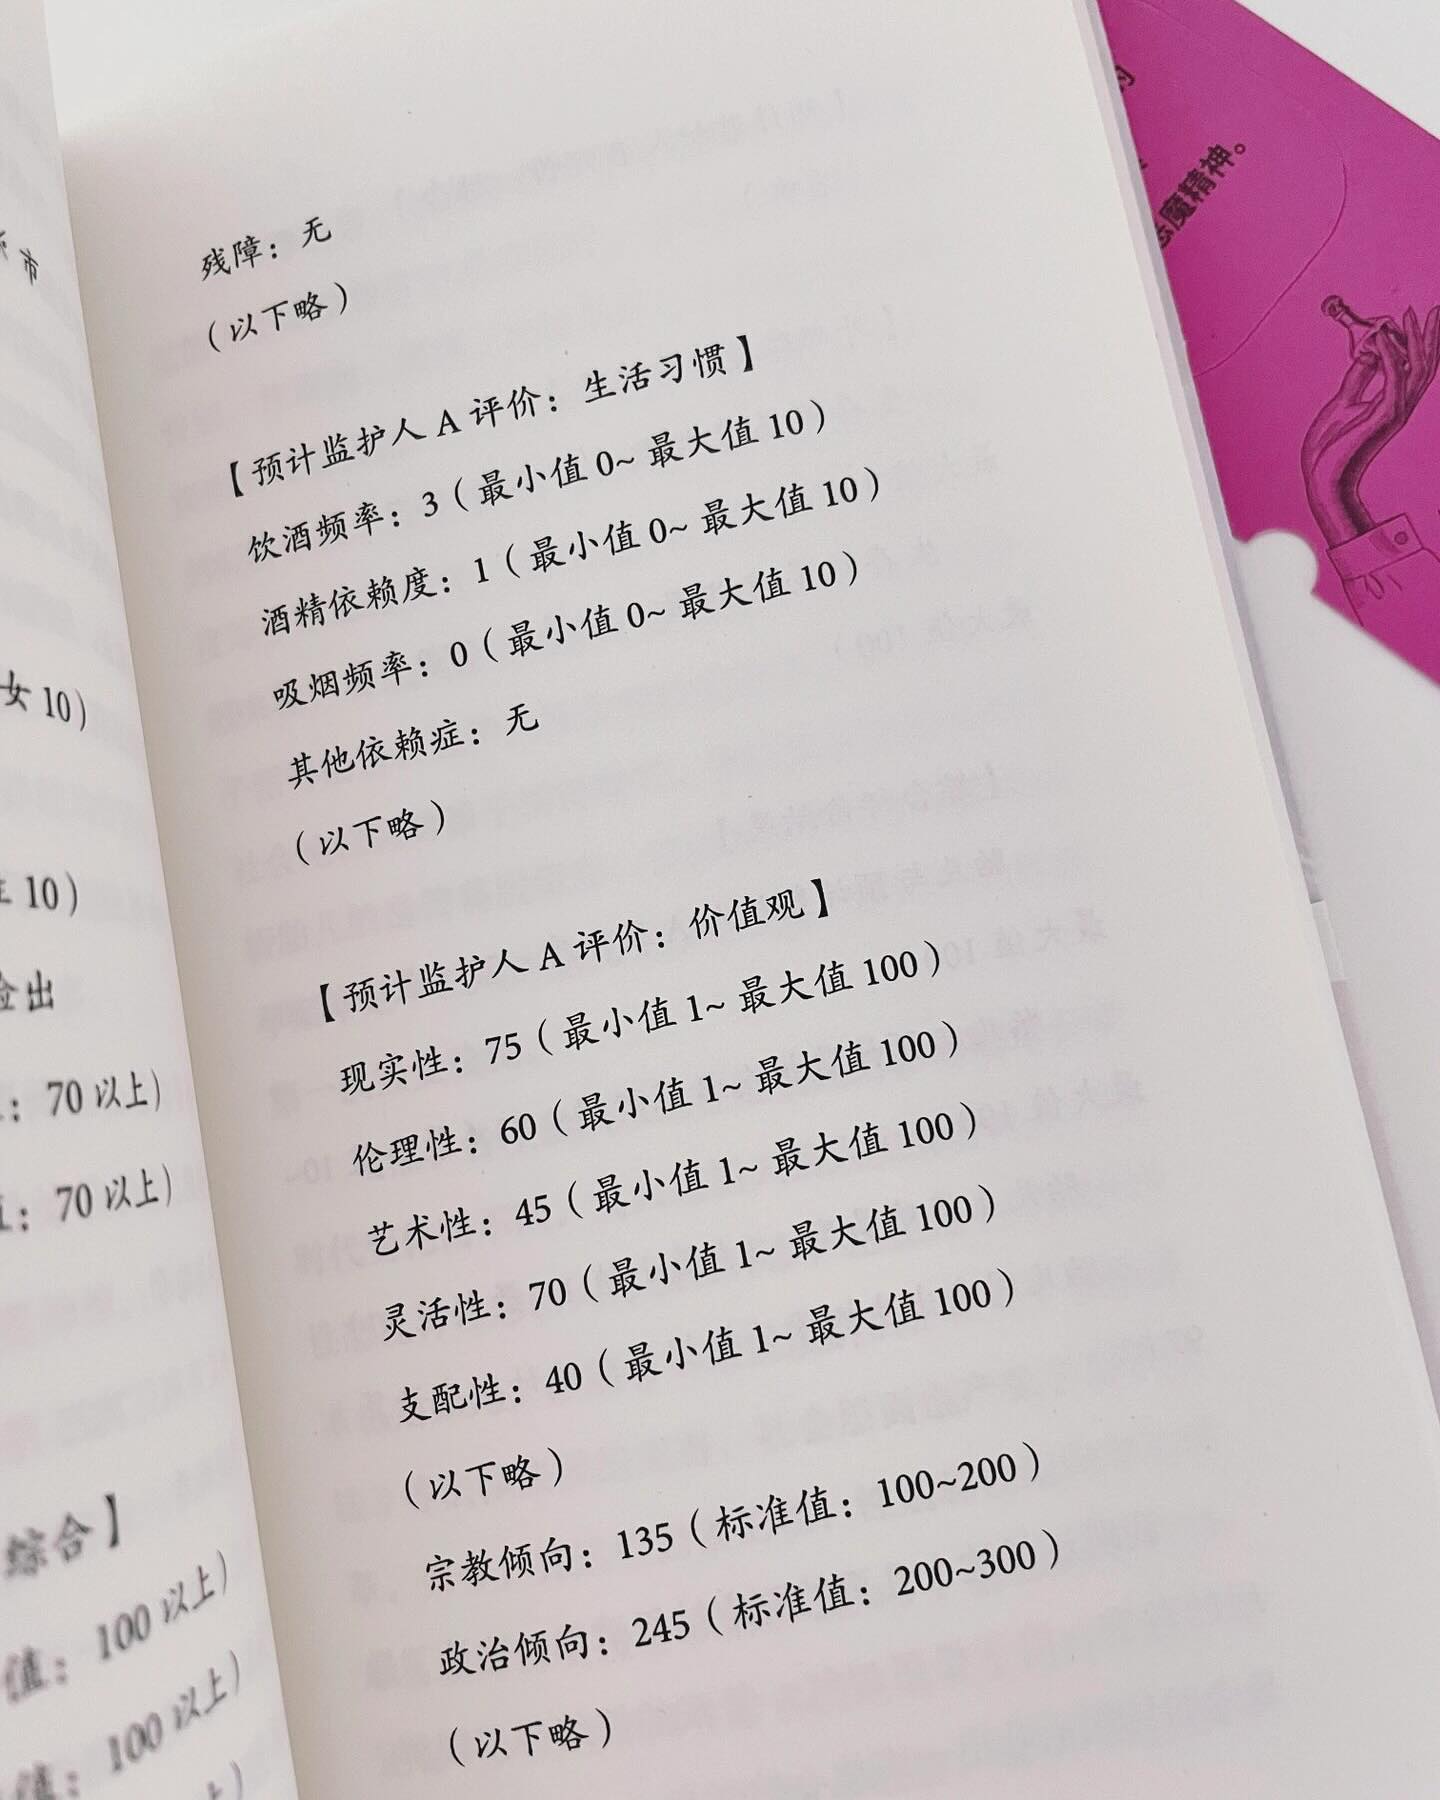 市
女 10）
10）
出
：70 以上）
：70 以上）
综合】
值：100 以上）
值：100 以上）
残障：无
（以下略）
【预计监护人 A 评价：生活习惯】
饮酒频率：3（最小值 0~ 最大值 10）
酒精依赖度：1（最小值 0~ 最大值 10）
吸烟频率：0（最小值 0~ 最大值 10）
其他依赖症：无
（以下略）
【预计监护人 A 评价：价值观】
现实性：75（最小值 1~ 最大值 100）
伦理性：60（最小值 1~ 最大值 100）
艺术性：45（最小值 1~ 最大值 100）
灵活性：70（最小值 1~ 最大值 100）
支配性：40（最小值 1~ 最大值 100）
（以下略）
宗教倾向：135（标准值：100~200）
政治倾向：245（标准值：200~300）
（以下略）
恶魔精神。